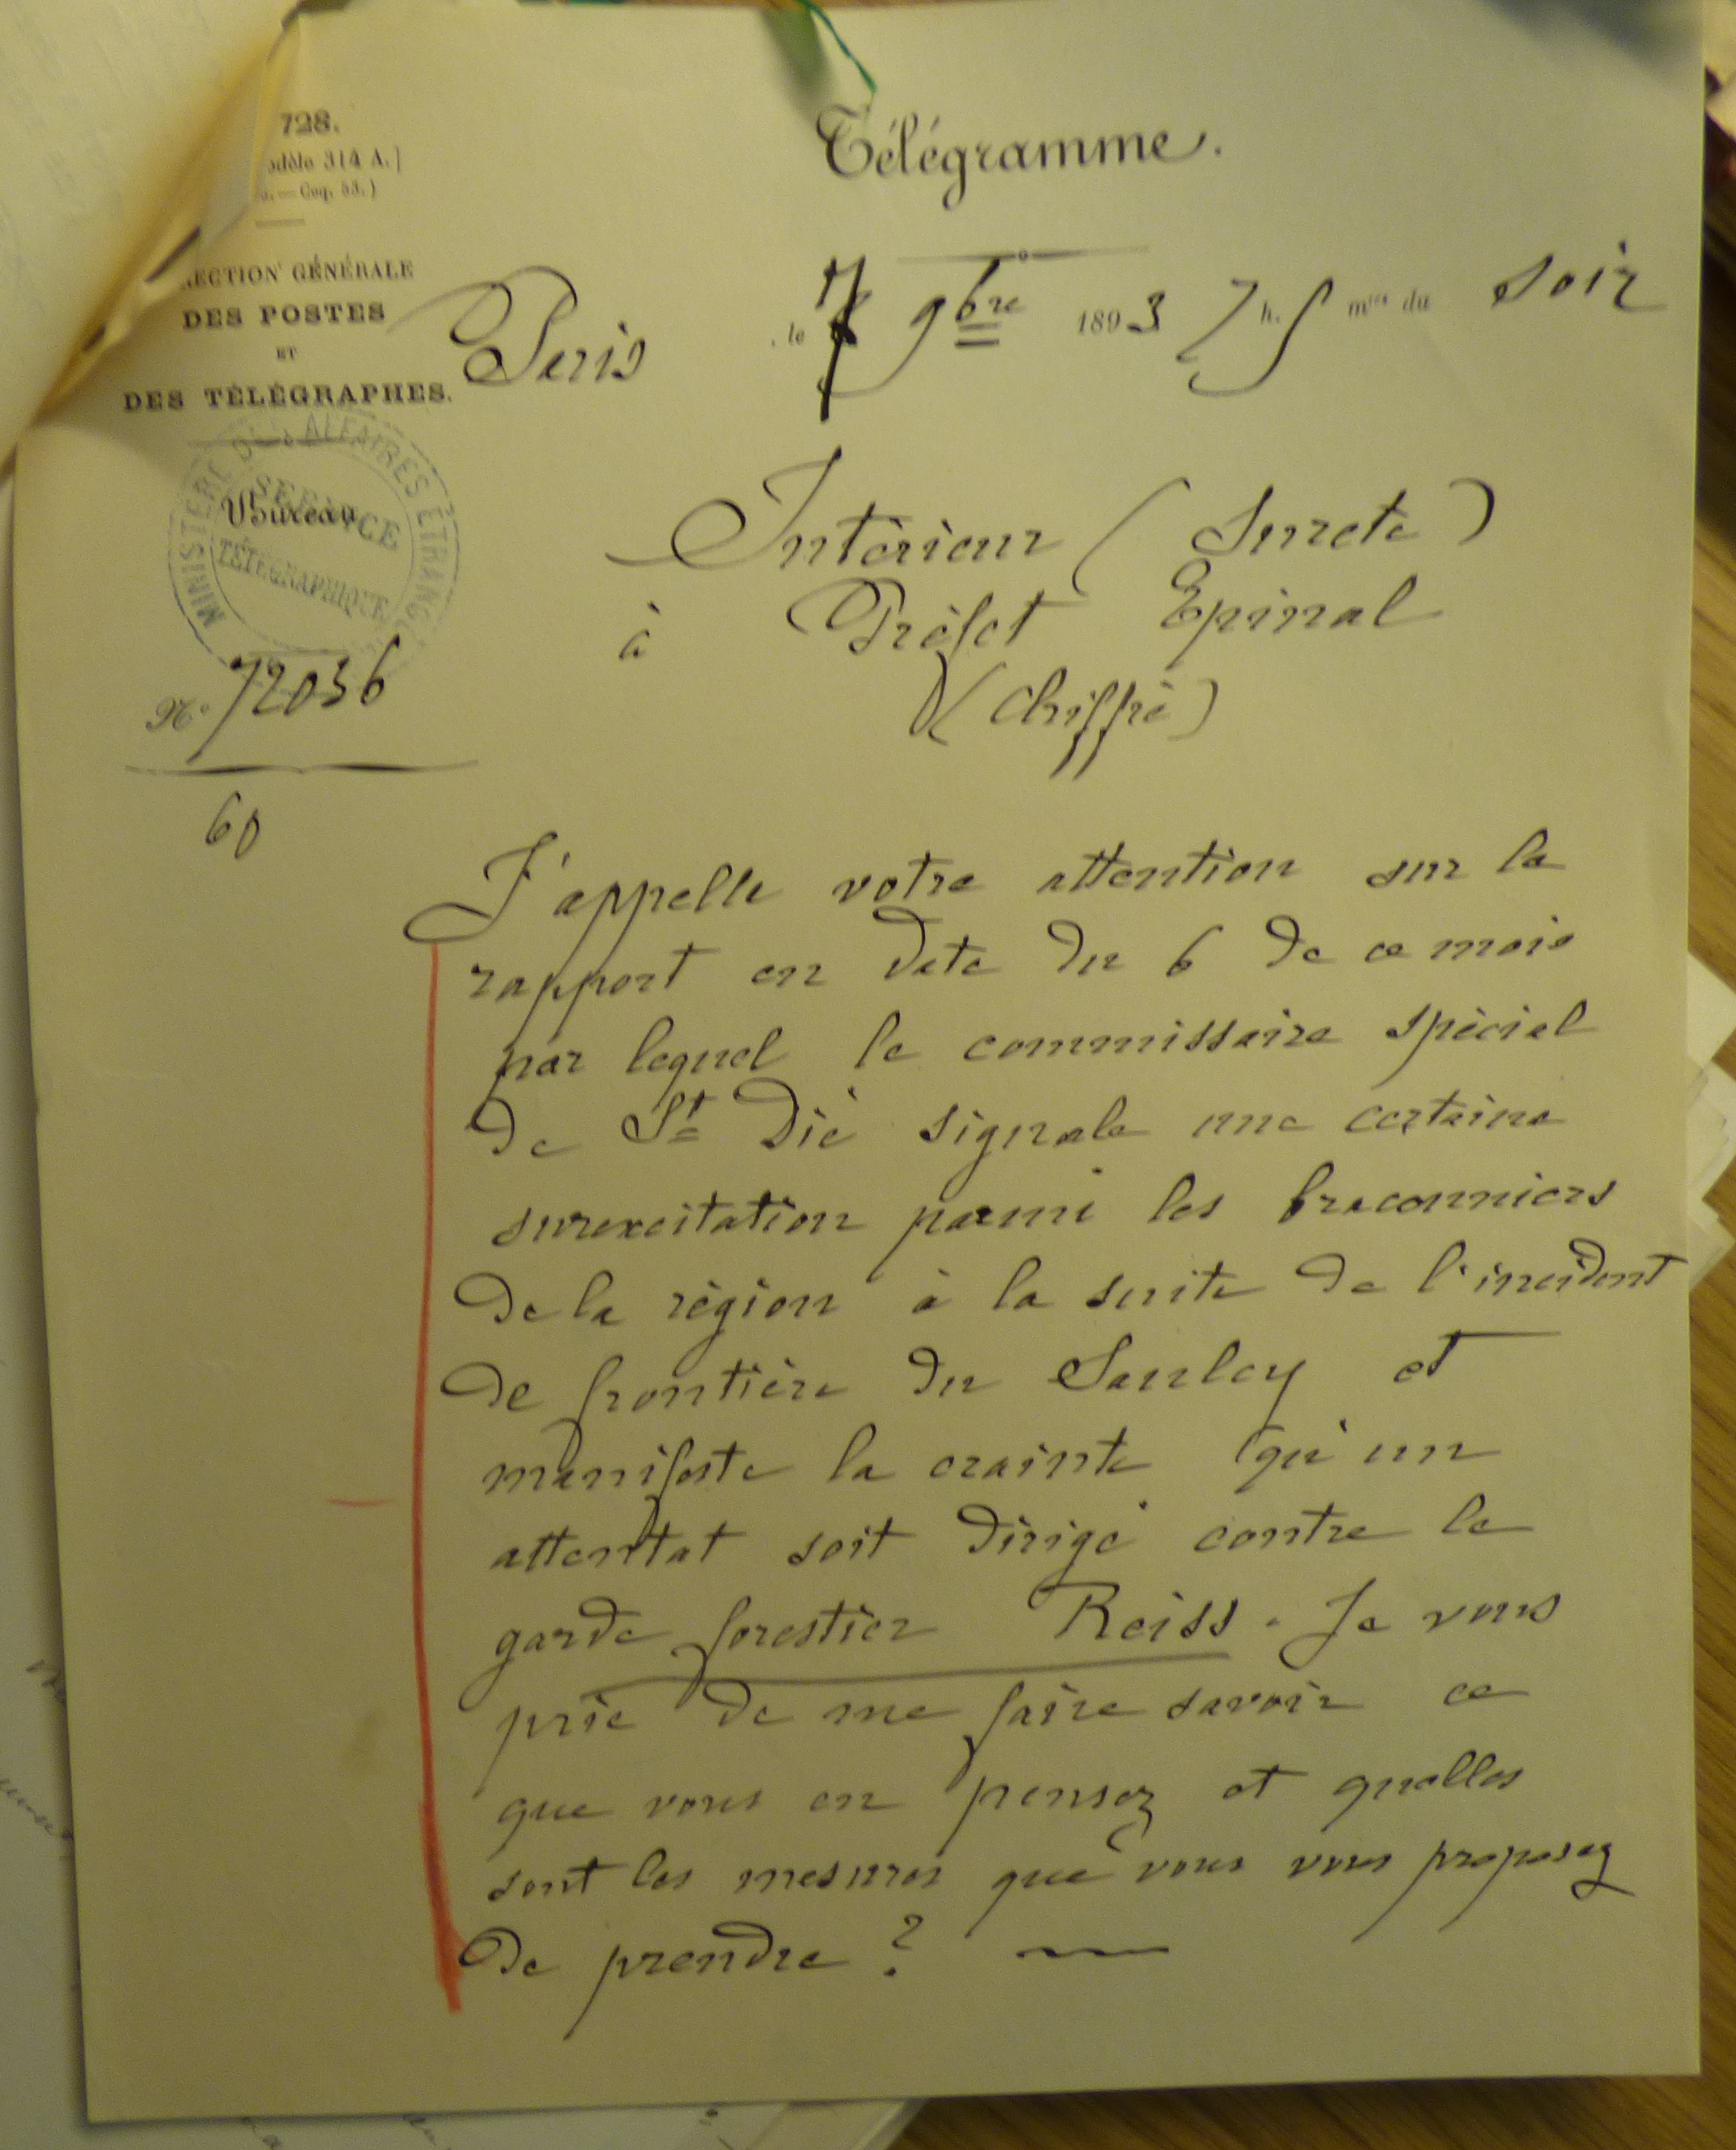 728.
odèle 314 A.]
Coq. 53.)
RECTION GÉNÉRALE
DES POSTES
ET
DES TÉLÉGRAPHES.
Télégramme.
Paris, le 7 9bre 1893 7 h. 5 mtes du soir
MINISTÈRE DES AFFAIRES ÉTRANGÈ
SERVICE
TÉLÉGRAPHIQUE
Bureau
No 72036
60
Intérieur (Surete)
à Préfet Epinal
(Chiffré)
J'appelle votre attention sur le
rapport en date du 6 de ce mois
par lequel le commissaire spécial
de St Dié signale une certaine
surexcitation parmi les braconniers
de la région à la suite de l'incident
de frontière du Saulcy et
manifeste la crainte qu'un
attentat soit dirigé contre le
garde forestier Reiss. Je vous
prie de me faire savoir ce
que vous en pensez et quelles
sont les mesures que vous vous proposez
de prendre ?